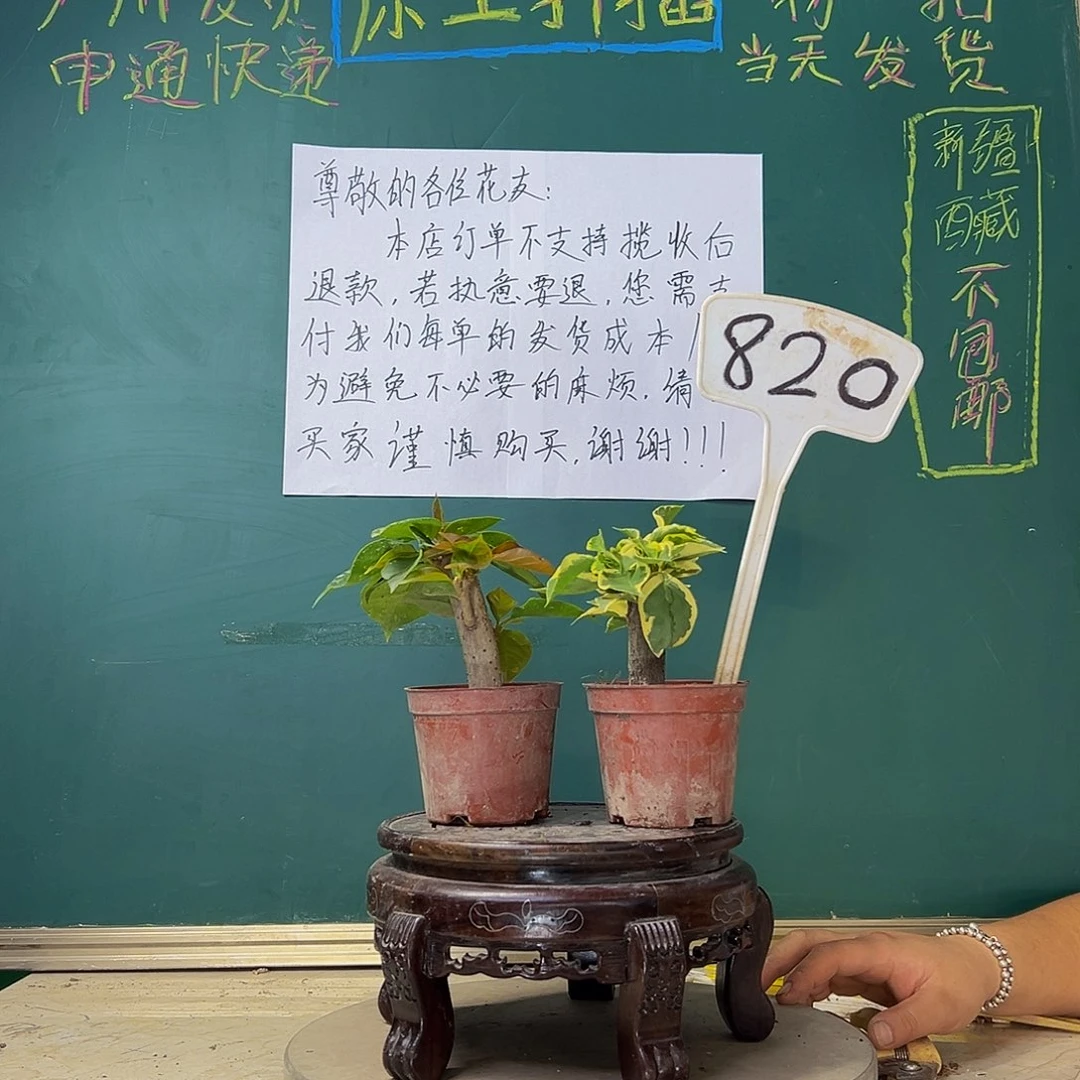 申通快递
当天发货
新疆
西藏
不包邮
尊敬的各位花友:
本店订单不支持揽收后
退款,若执意要退,您需支
付我们每单的发货成本
为避免不必要的麻烦.请
买家谨慎购买,谢谢!!!
820